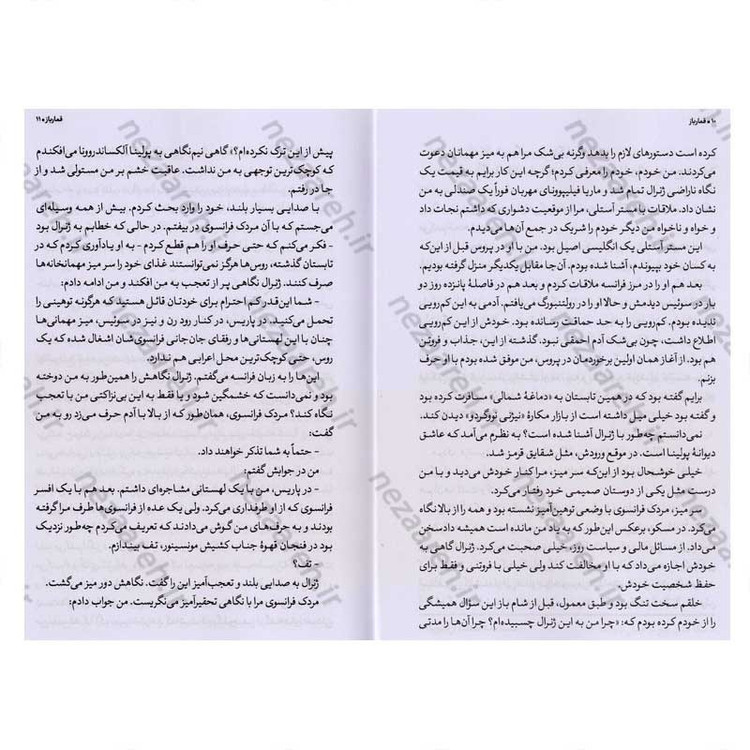 ۱۰ • قمارباز
کرده است دستورهای لازم را بدهد وگرنه بی‌شک مرا هم به میز مهمانان دعوت
می‌کردند. من خودم، خودم را معرفی کردم؛ گرچه این کار برایم به قیمت یک
نگاه ناراضی ژنرال تمام شد و ماریا فیلیپوونای مهربان فوراً یک صندلی به من
نشان داد. ملاقات با مستر آستلی، مرا از موقعیت دشواری که داشتم نجات داد
و خواه و ناخواه من دیگر خودم را شریک در جمع آن‌ها می‌دیدم.
این مستر آستلی یک انگلیسی اصیل بود. من با او در پروس قبل از این‌که
به کسان خود بپیوندم، آشنا شده بودم. آن‌جا مقابل یکدیگر منزل گرفته بودیم.
بعد هم او را در مرز فرانسه ملاقات کردم و بعد هم در فاصلهٔ پانزده روز دو
بار در سوئیس دیدمش و حالا او را در رولتنبورگ می‌یافتم. آدمی به این کم‌رویی
ندیده بودم. کم‌رویی را به حد حماقت رسانده بود. خودش از این کم‌رویی
اطلاع داشت، چون بی‌شک آدم احمقی نبود. گذشته از این، جذاب و فروتن
هم بود. از آغاز همان اولین برخوردمان در پروس، من موفق شده بودم با او حرف
بزنم.
برایم گفته بود که در همین تابستان به «دماغهٔ شمالی» مسافرت کرده بود
و گفته بود خیلی میل داشته است از بازار مکارهٔ «نیژنی نووگردو» دیدن کند.
نمی‌دانستم چه‌طور با ژنرال آشنا شده است؟ به نظرم می‌آمد که عاشق
دیوانهٔ پولینا است. در موقع ورودش، مثل شقایق قرمز شد.
خیلی خوشحال بود از این‌که سر میز، مرا کنار خودش می‌دید و با من
درست مثل یکی از دوستان صمیمی خود رفتار می‌کرد.
سر میز، مردک فرانسوی با وضعی توهین‌آمیز نشسته بود و همه را از بالا نگاه
می‌کرد. در مسکو، برعکس این‌طور که به یاد من مانده است همیشه داد سخن
می‌داد. از مسائل مالی و سیاست روز، خیلی صحبت می‌کرد. ژنرال گاهی به
خودش اجازه می‌داد که با او مخالفت کند ولی خیلی با فروتنی و فقط برای
حفظ شخصیت خودش.
خلقم سخت تنگ بود و طبق معمول، قبل از شام باز این سؤال همیشگی
را از خودم کرده بودم که: «چرا من به این ژنرال چسبیده‌ام؟ چرا آن‌ها را مدتی
قمارباز • ۱۱
پیش از این ترک نکرده‌ام؟» گاهی نیم‌نگاهی به پولینا آلکساندروونا می‌افکندم
که کوچک‌ترین توجهی به من نداشت. عاقبت خشم بر من مستولی شد و از
جا در رفتم.
با صدایی بسیار بلند، خود را وارد بحث کردم. بیش از همه وسیله‌ای
می‌جستم که با آن مردک فرانسوی در بیفتم. در حالی که خطابم به ژنرال بود
- فکر می‌کنم که حتی حرف او را هم قطع کردم - به او یادآوری کردم که در
تابستان گذشته، روس‌ها هرگز نمی‌توانستند غذای خود را سر میز مهمانخانه‌ها
صرف کنند. ژنرال نگاهی پر از تعجب به من افکند و من ادامه دادم:
- شما این‌قدر کم احترام برای خودتان قائل هستید که هرگونه توهینی را
تحمل می‌کنید. در پاریس، در کنار رود رن و نیز در سوئیس، میز مهمانی‌ها
چنان با این لهستانی‌ها و رفقای جان‌جانی فرانسوی‌شان اشغال شده که یک
روس، حتی کوچک‌ترین محل اعرابی هم ندارد.
این‌ها را به زبان فرانسه می‌گفتم. ژنرال نگاهش را همین‌طور به من دوخته
بود و نمی‌دانست که خشمگین شود و یا فقط به این بی‌نزاکتی من با تعجب
نگاه کند؟ مردک فرانسوی، همان‌طور که از بالا با آدم حرف می‌زد رو به من
گفت:
- حتماً به شما تذکر خواهند داد.
من در جوابش گفتم:
- در پاریس، من با یک لهستانی مشاجره‌ای داشتم. بعد هم با یک افسر
فرانسوی که از او طرفداری می‌کرد. ولی یک عده از فرانسوی‌ها طرف مرا گرفته
بودند و به حرف‌های من گوش می‌دادند که تعریف می‌کردم چه‌طور نزدیک
بود در فنجان قهوهٔ جناب کشیش مونسینور، تف بیندازم.
- تف؟
ژنرال به صدایی بلند و تعجب‌آمیز این را گفت. نگاهش دور میز می‌گشت.
مردک فرانسوی مرا با نگاهی تحقیرآمیز می‌نگریست. من جواب دادم:
nezareh.ir